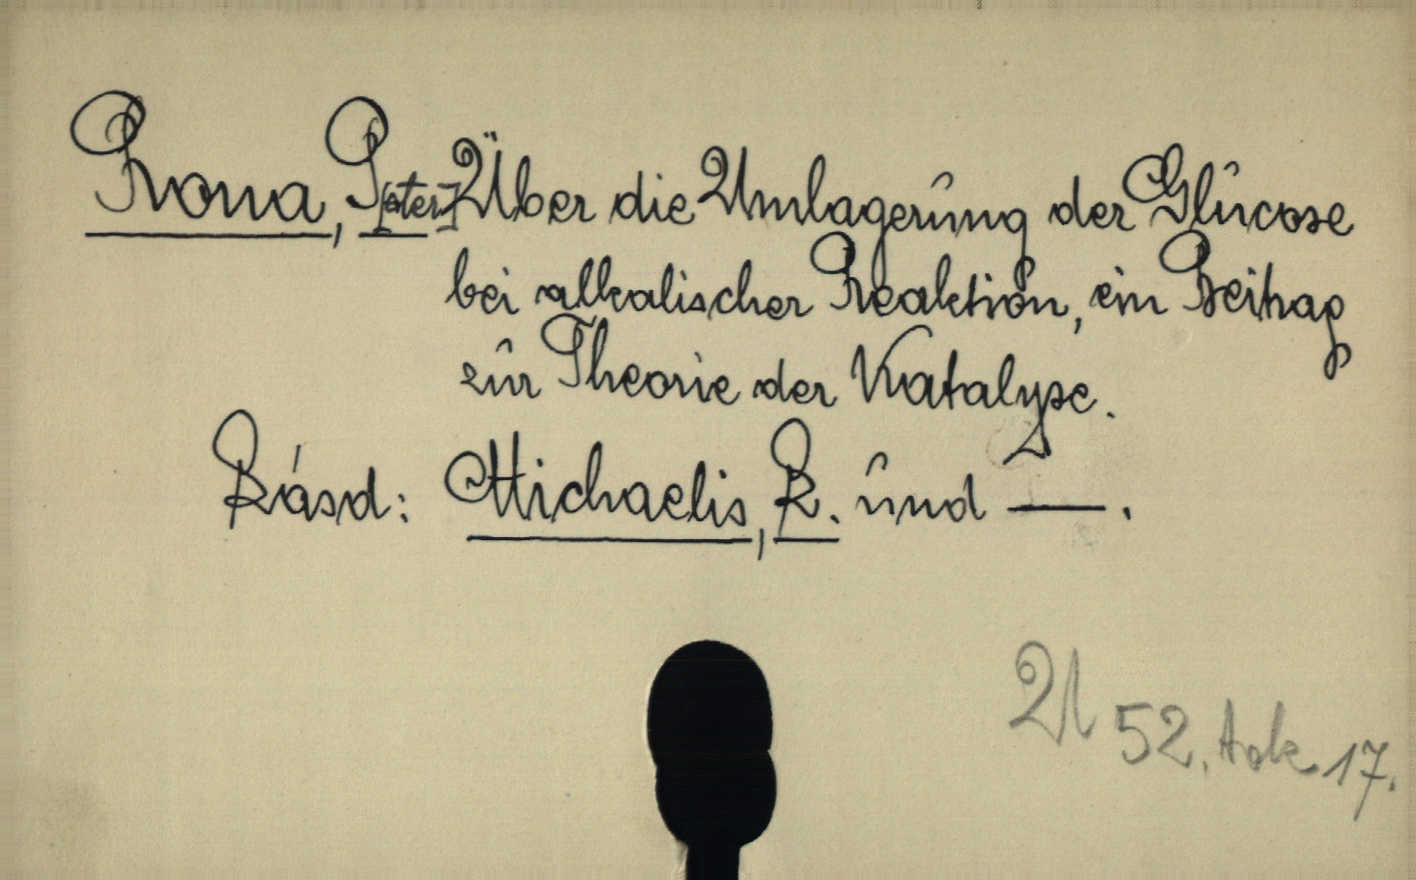 Rona, P[eter] Über die Umlagerung der Glucose
bei alkalischer Reaktion, ein Beitrag
zur Theorie der Katalyse.
Lásd: Michaelis, L. und —.
52.
17.